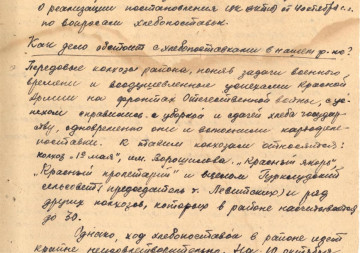 О реализации постановления ЦК ВКП(б) от 4 октября с.г.
по вопросам хлебопоставок.
Как дело обстоит с хлебопоставками в нашем р-не?
Передовые колхозы района, поняв задачи военного
времени и воодушевленные успехами Красной
Армии на фронтах Отечественной войны, с ус-
пехом справились с уборкой и сдачей хлеба государ-
ству, одновременно они и выполнили
поставки. К таким колхозам относятся:
колхоз "19 мая", им. Ворошилова, "Красный якорь",
"Красный пролетарий" и
сельсовет председатель т. и ряд
других колхозов, которых в районе насчитывается
до 30.
Однако, ход хлебопоставок в районе идет
крайне неудовлетворительно. На 10 октября